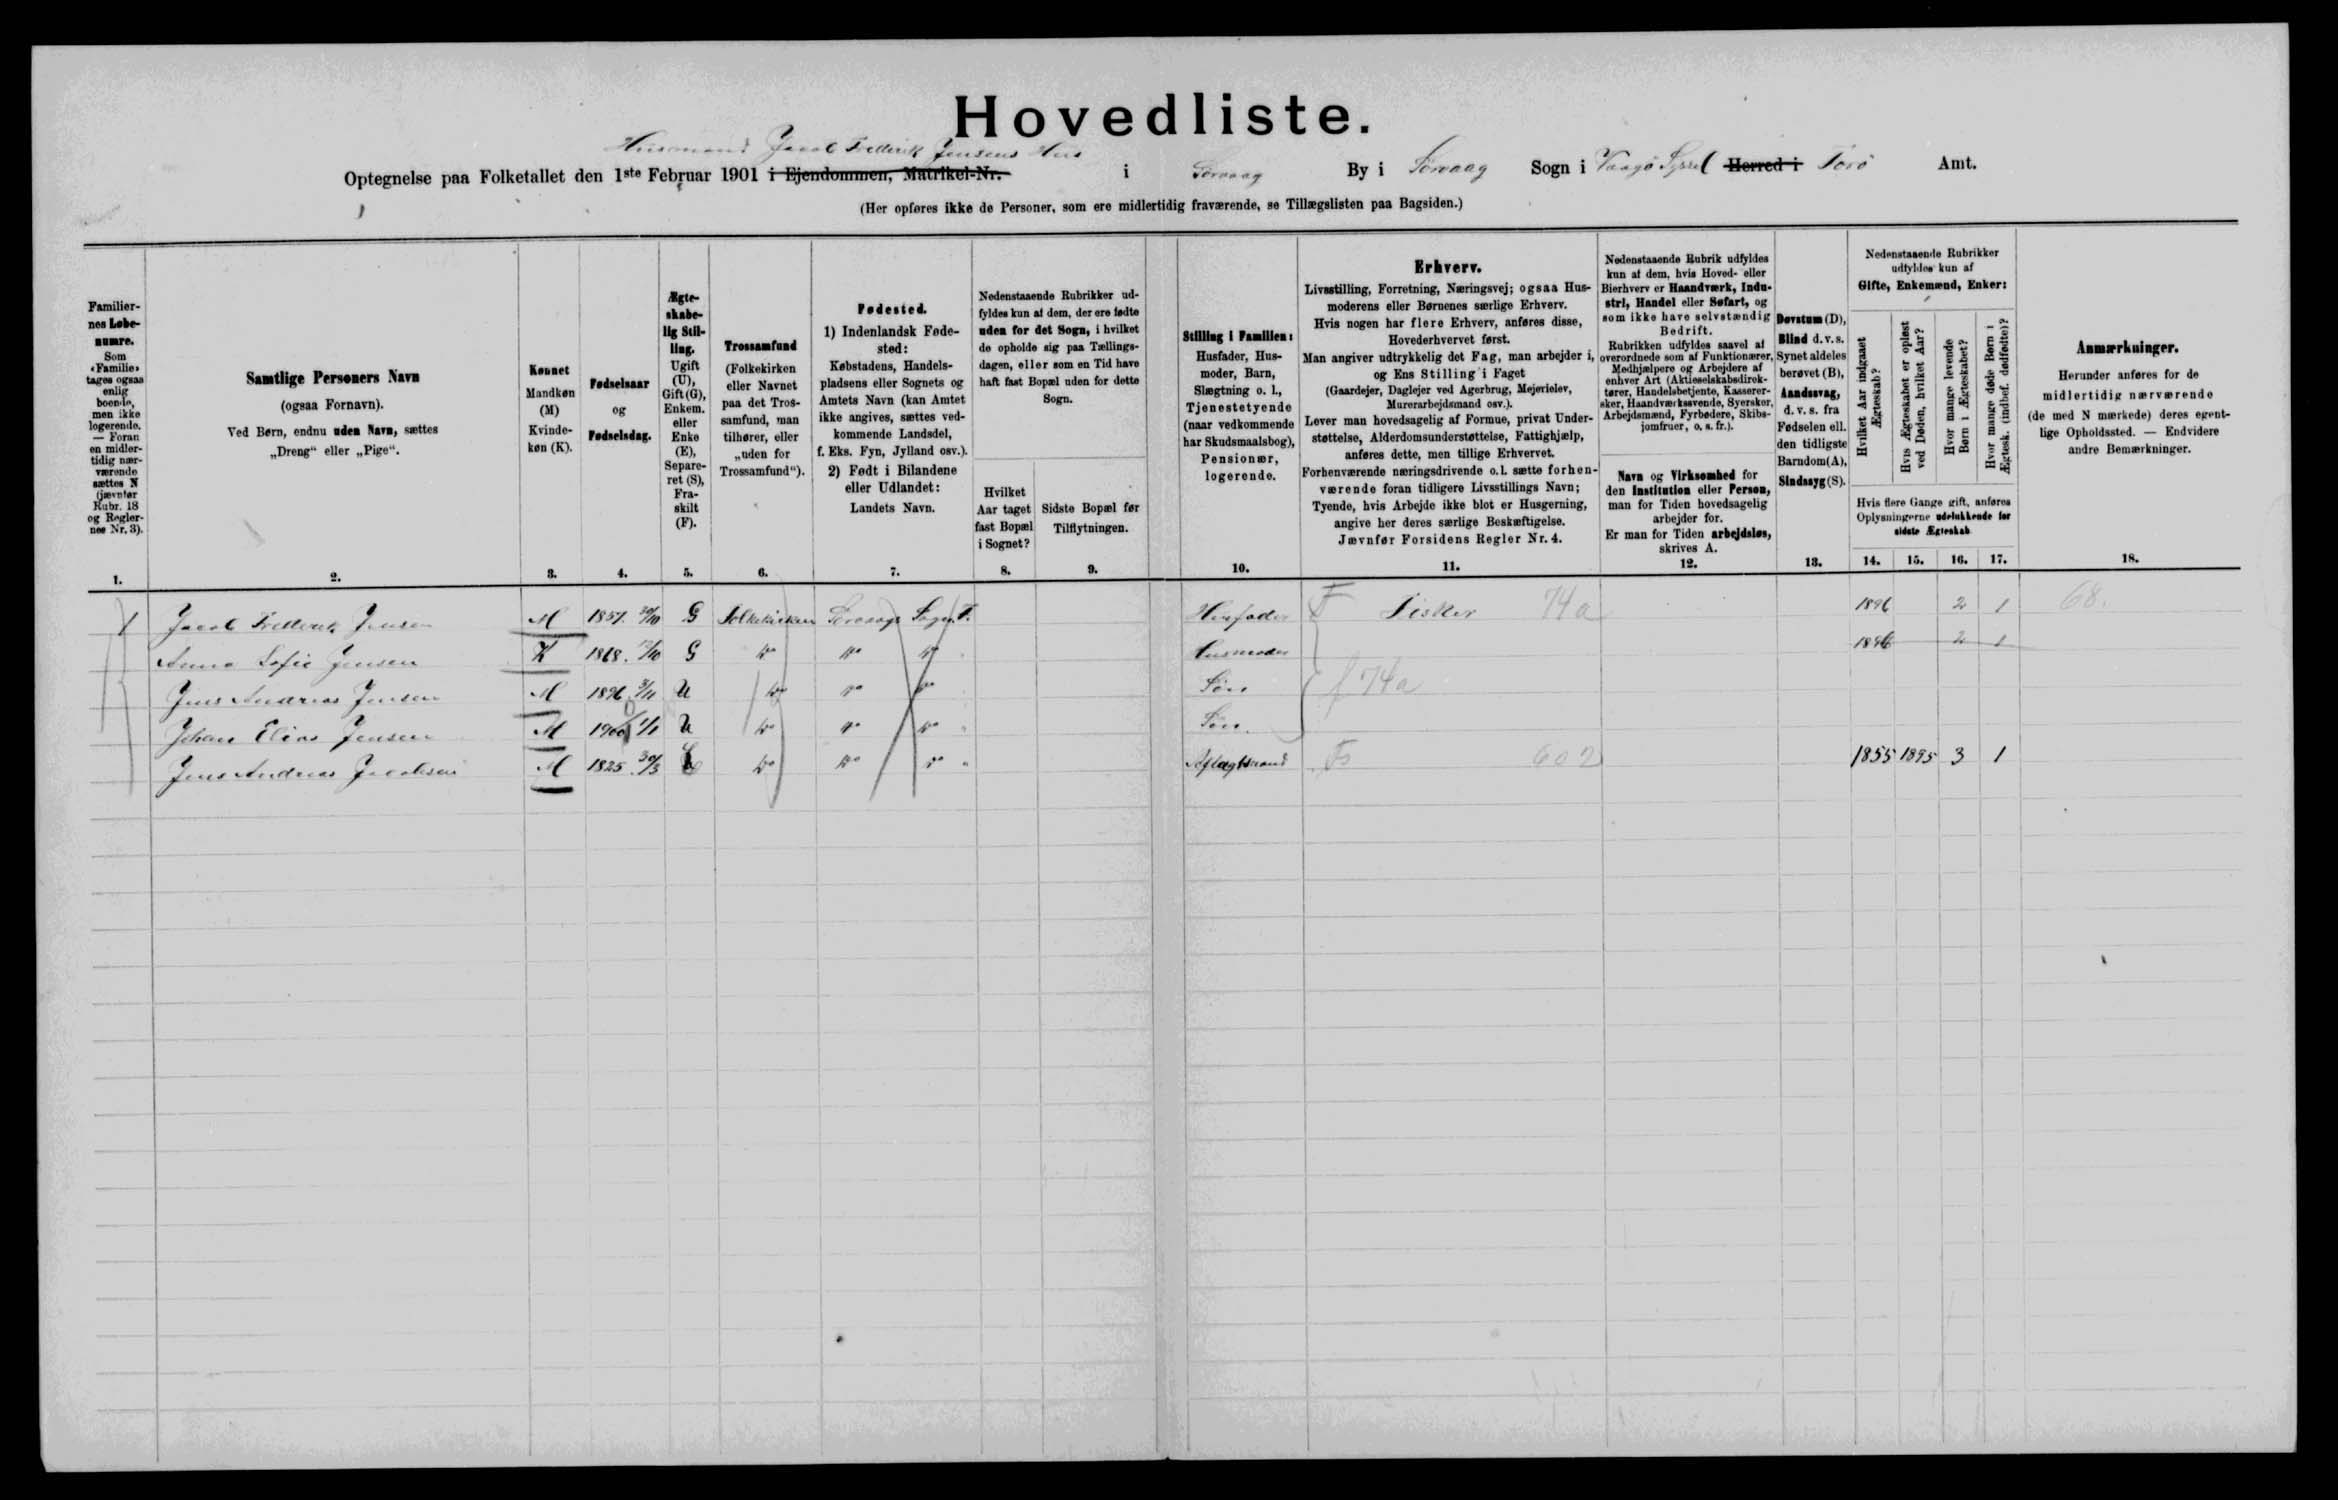 Hovedliste.
Husmand Jacob Frederik Jensens Hus
Optegnelse paa Folketallet den 1ste Februar 1901 i Ejendommen, Matrikel-Nr. i Sørvaag By i Sørvaag Sogn i Vaagø Syssel Herred i Færø Amt.
(Her opføres ikke de Personer, som ere midlertidig fraværende, se Tillægslisten paa Bagsiden.)
Familier-
nes Løbe-
numre.
Som
«Familie»
tages ogsaa
enlig
boende,
men ikke
logerende.
— Foran
en midler-
tidig nær-
værende
sættes N
(jævnfør
Rubr. 18
og Regler-
nes Nr. 3).
1.
Samtlige Personers Navn
(ogsaa Fornavn).
Ved Børn, endnu uden Navn, sættes
„Dreng“ eller „Pige“.
2.
Kønnet
Mandkøn
(M)
Kvinde-
køn (K).
3.
Fødselsaar
og
Fødselsdag.
4.
Ægte-
skabe-
lig Stil-
ling.
Ugift
(U),
Gift (G),
Enkem.
eller
Enke
(E),
Separe-
ret (S),
Fra-
skilt
(F).
5.
Trossamfund
(Folkekirken
eller Navnet
paa det Tros-
samfund, man
tilhører, eller
„uden for
Trossamfund“).
6.
Fødested.
1) Indenlandsk Føde-
sted:
Købstadens, Handels-
pladsens eller Sognets og
Amtets Navn (kan Amtet
ikke angives, sættes ved-
kommende Landsdel,
f. Eks. Fyn, Jylland osv.).
2) Født i Bilandene
eller Udlandet:
Landets Navn.
7.
Nedenstaaende Rubrikker ud-
fyldes kun af dem, der ere fødte
uden for det Sogn, i hvilket
de opholde sig paa Tællings-
dagen, eller som en Tid have
haft fast Bopæl uden for dette
Sogn.
Hvilket
Aar taget
fast Bopæl
i Sognet?
8.
Sidste Bopæl før
Tilflytningen.
9.
Stilling i Familien:
Husfader, Hus-
moder, Barn,
Slægtning o. l.,
Tjenestetyende
(naar vedkommende
har Skudsmaalsbog),
Pensionær,
logerende.
10.
Erhverv.
Livsstilling, Forretning, Næringsvej; ogsaa Hus-
moderens eller Børnenes særlige Erhverv.
Hvis nogen har flere Erhverv, anføres disse,
Hovederhvervet først.
Man angiver udtrykkelig det Fag, man arbejder i,
og Ens Stilling i Faget
(Gaardejer, Daglejer ved Agerbrug, Mejerielev,
Murerarbejdsmand osv.).
Lever man hovedsagelig af Formue, privat Under-
støttelse, Alderdomsunderstøttelse, Fattighjælp,
anføres dette, men tillige Erhvervet.
Forhenværende næringsdrivende o. l. sætte forhen-
værende foran tidligere Livsstillings Navn;
Tyende, hvis Arbejde ikke blot er Husgerning,
angive her deres særlige Beskæftigelse.
Jævnfør Forsidens Regler Nr. 4.
11.
Nedenstaaende Rubrik udfyldes
kun af dem, hvis Hoved- eller
Bierhverv er Haandværk, Indu-
stri, Handel eller Søfart, og
som ikke have selvstændig
Bedrift.
Rubrikken udfyldes saavel af
overordnede som af Funktionærer,
Medhjælpere og Arbejdere af
enhver Art (Aktieselskabsdirek-
tører, Handelsbetjente, Kasserer-
sker, Haandværkssvende, Syersker,
Arbejdsmænd, Fyrbødere, Skibs-
jomfruer, o. s. fr.).
Navn og Virksomhed for
den Institution eller Person,
man for Tiden hovedsagelig
arbejder for.
Er man for Tiden arbejdsløs,
skrives A.
12.
Døvstum (D),
Blind d. v. s.
Synet aldeles
berøvet (B),
Aandssvag,
d. v. s. fra
Fødselen ell.
den tidligste
Barndom (A),
Sindssyg (S).
13.
Nedenstaaende Rubrikker
udfyldes kun af
Gifte, Enkemænd, Enker:
Hvilket Aar indgaaet
Ægteskab?
Hvis Ægteskabet er opløst
ved Døden, hvilket Aar?
Hvor mange levende
Børn i Ægteskabet?
Hvor mange døde Børn i
Ægtesk. (indbef. dødfødte)?
Hvis flere Gange gift, anføres
Oplysningerne udelukkende for
sidste Ægteskab
14. 15. 16. 17.
Anmærkninger.
Herunder anføres for de
midlertidig nærværende
(de med N mærkede) deres egent-
lige Opholdssted. — Endvidere
andre Bemærkninger.
18.
1 Jacob Frederik Jensen M 1857. 30/10 G Folkekirken Sørvaags Sogn F. Husfader F Fisker 74a 1896 2 1 68.
Anna Sofie Jensen K 1868. G do do do Husmoder 1896 2 1
Jens Andreas Jensen M 1896 3/11 U do do do Søn f 74a
Johan Elias Jensen M 1900 1/1 U do do do Søn.
Jens Andreas Jacobsen M 1825. 30/3 E do do do Aflægtsmand F 602 1855 1895 3 1